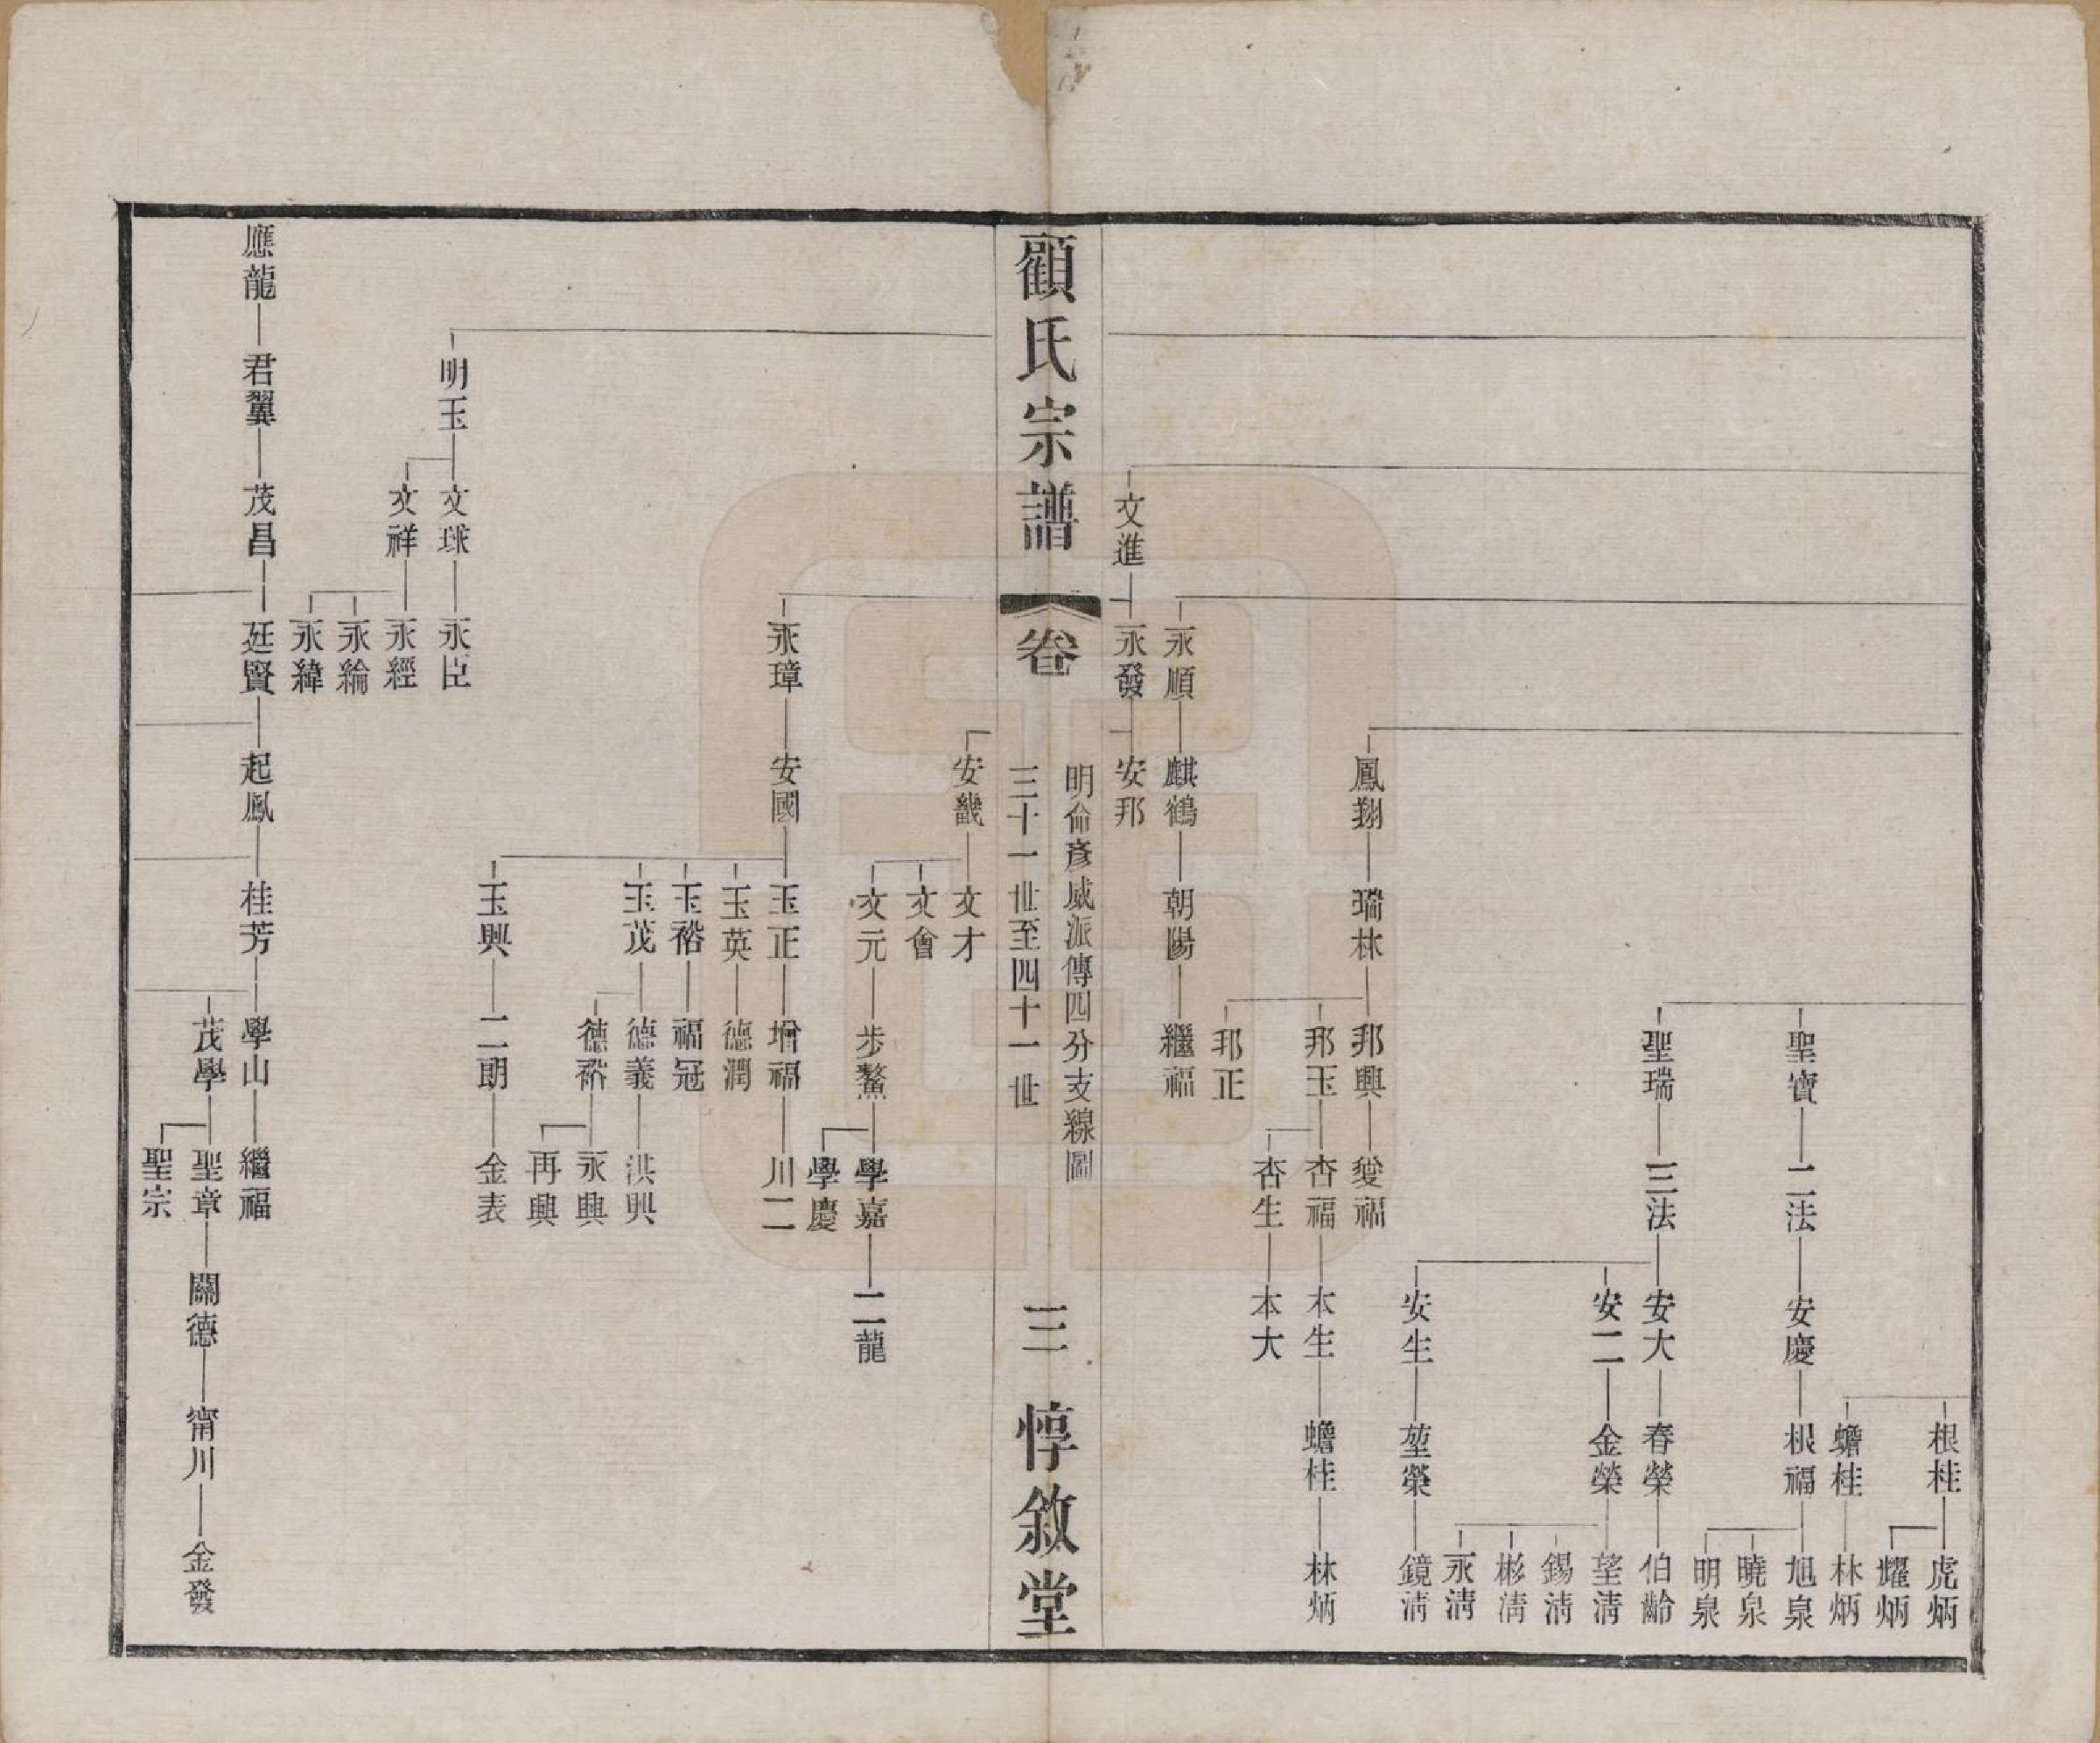 根桂
虎炳
耀炳
蟾桂
林炳
聖寶
二法
安慶
根福
旭泉
曉泉
明泉
聖瑞
三法
安大
春榮
伯齡
安二
金榮
望淸
錫淸
彬淸
永淸
安生
堃榮
鏡淸
鳳翔
瑞林
邦興
愛福
邦玉
杏福
木生
蟾桂
林炳
杏生
本大
邦正
永順
麒鶴
朝陽
繼福
文進
永發
安邦
顧氏宗譜
卷
明侖彥威派傳四分支線圖
三十一世至四十一世
三
惇敘堂
安畿
文才
文會
文元
步鰲
學嘉
二龍
學慶
永璋
安國
玉正
增福
川二
玉英
德潤
玉裕
福冠
玉茂
德義
洪興
德裕
永興
再興
玉興
二朗
金表
明玉
文球
永臣
文祥
永經
永綸
永緯
應龍
君翼
茂昌
廷賢
起鳳
桂芳
學山
繼福
茂學
聖章
關德
甯川
金發
聖宗